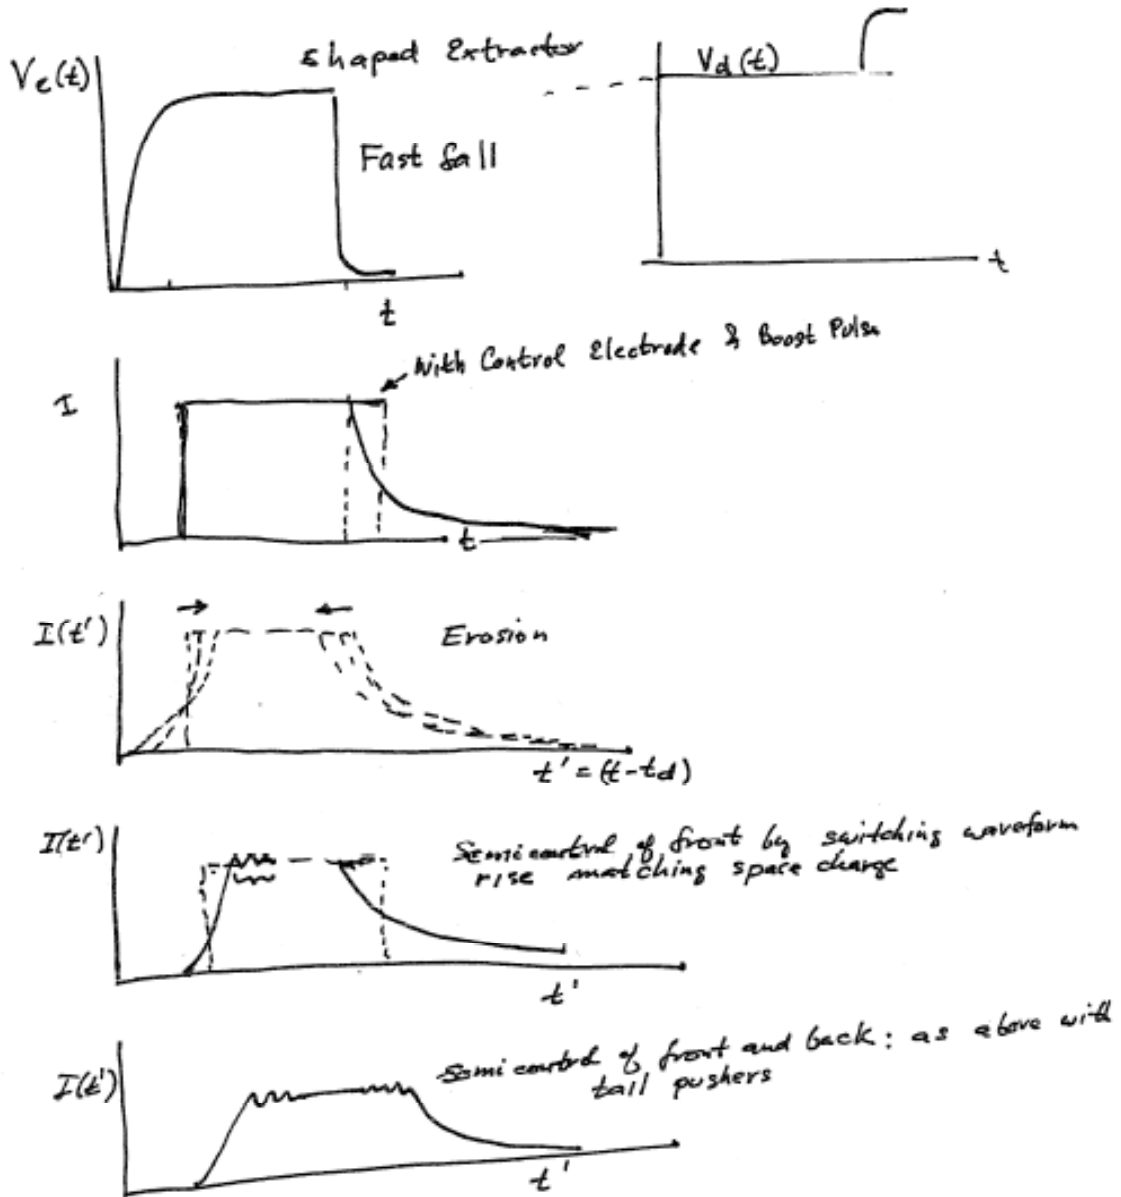 Shaped Extractor
Ve(t)
Vd(t)
Fast fall
t
t
With Control Electrode & Boost Pulse
I
t
I(t')
Erosion
t' = (t-td)
I(t')
Semicontrol of front by switching waveform
rise matching space charge
t'
Semicontrol of front and back: as above with
tail pushers
I(t')
t'